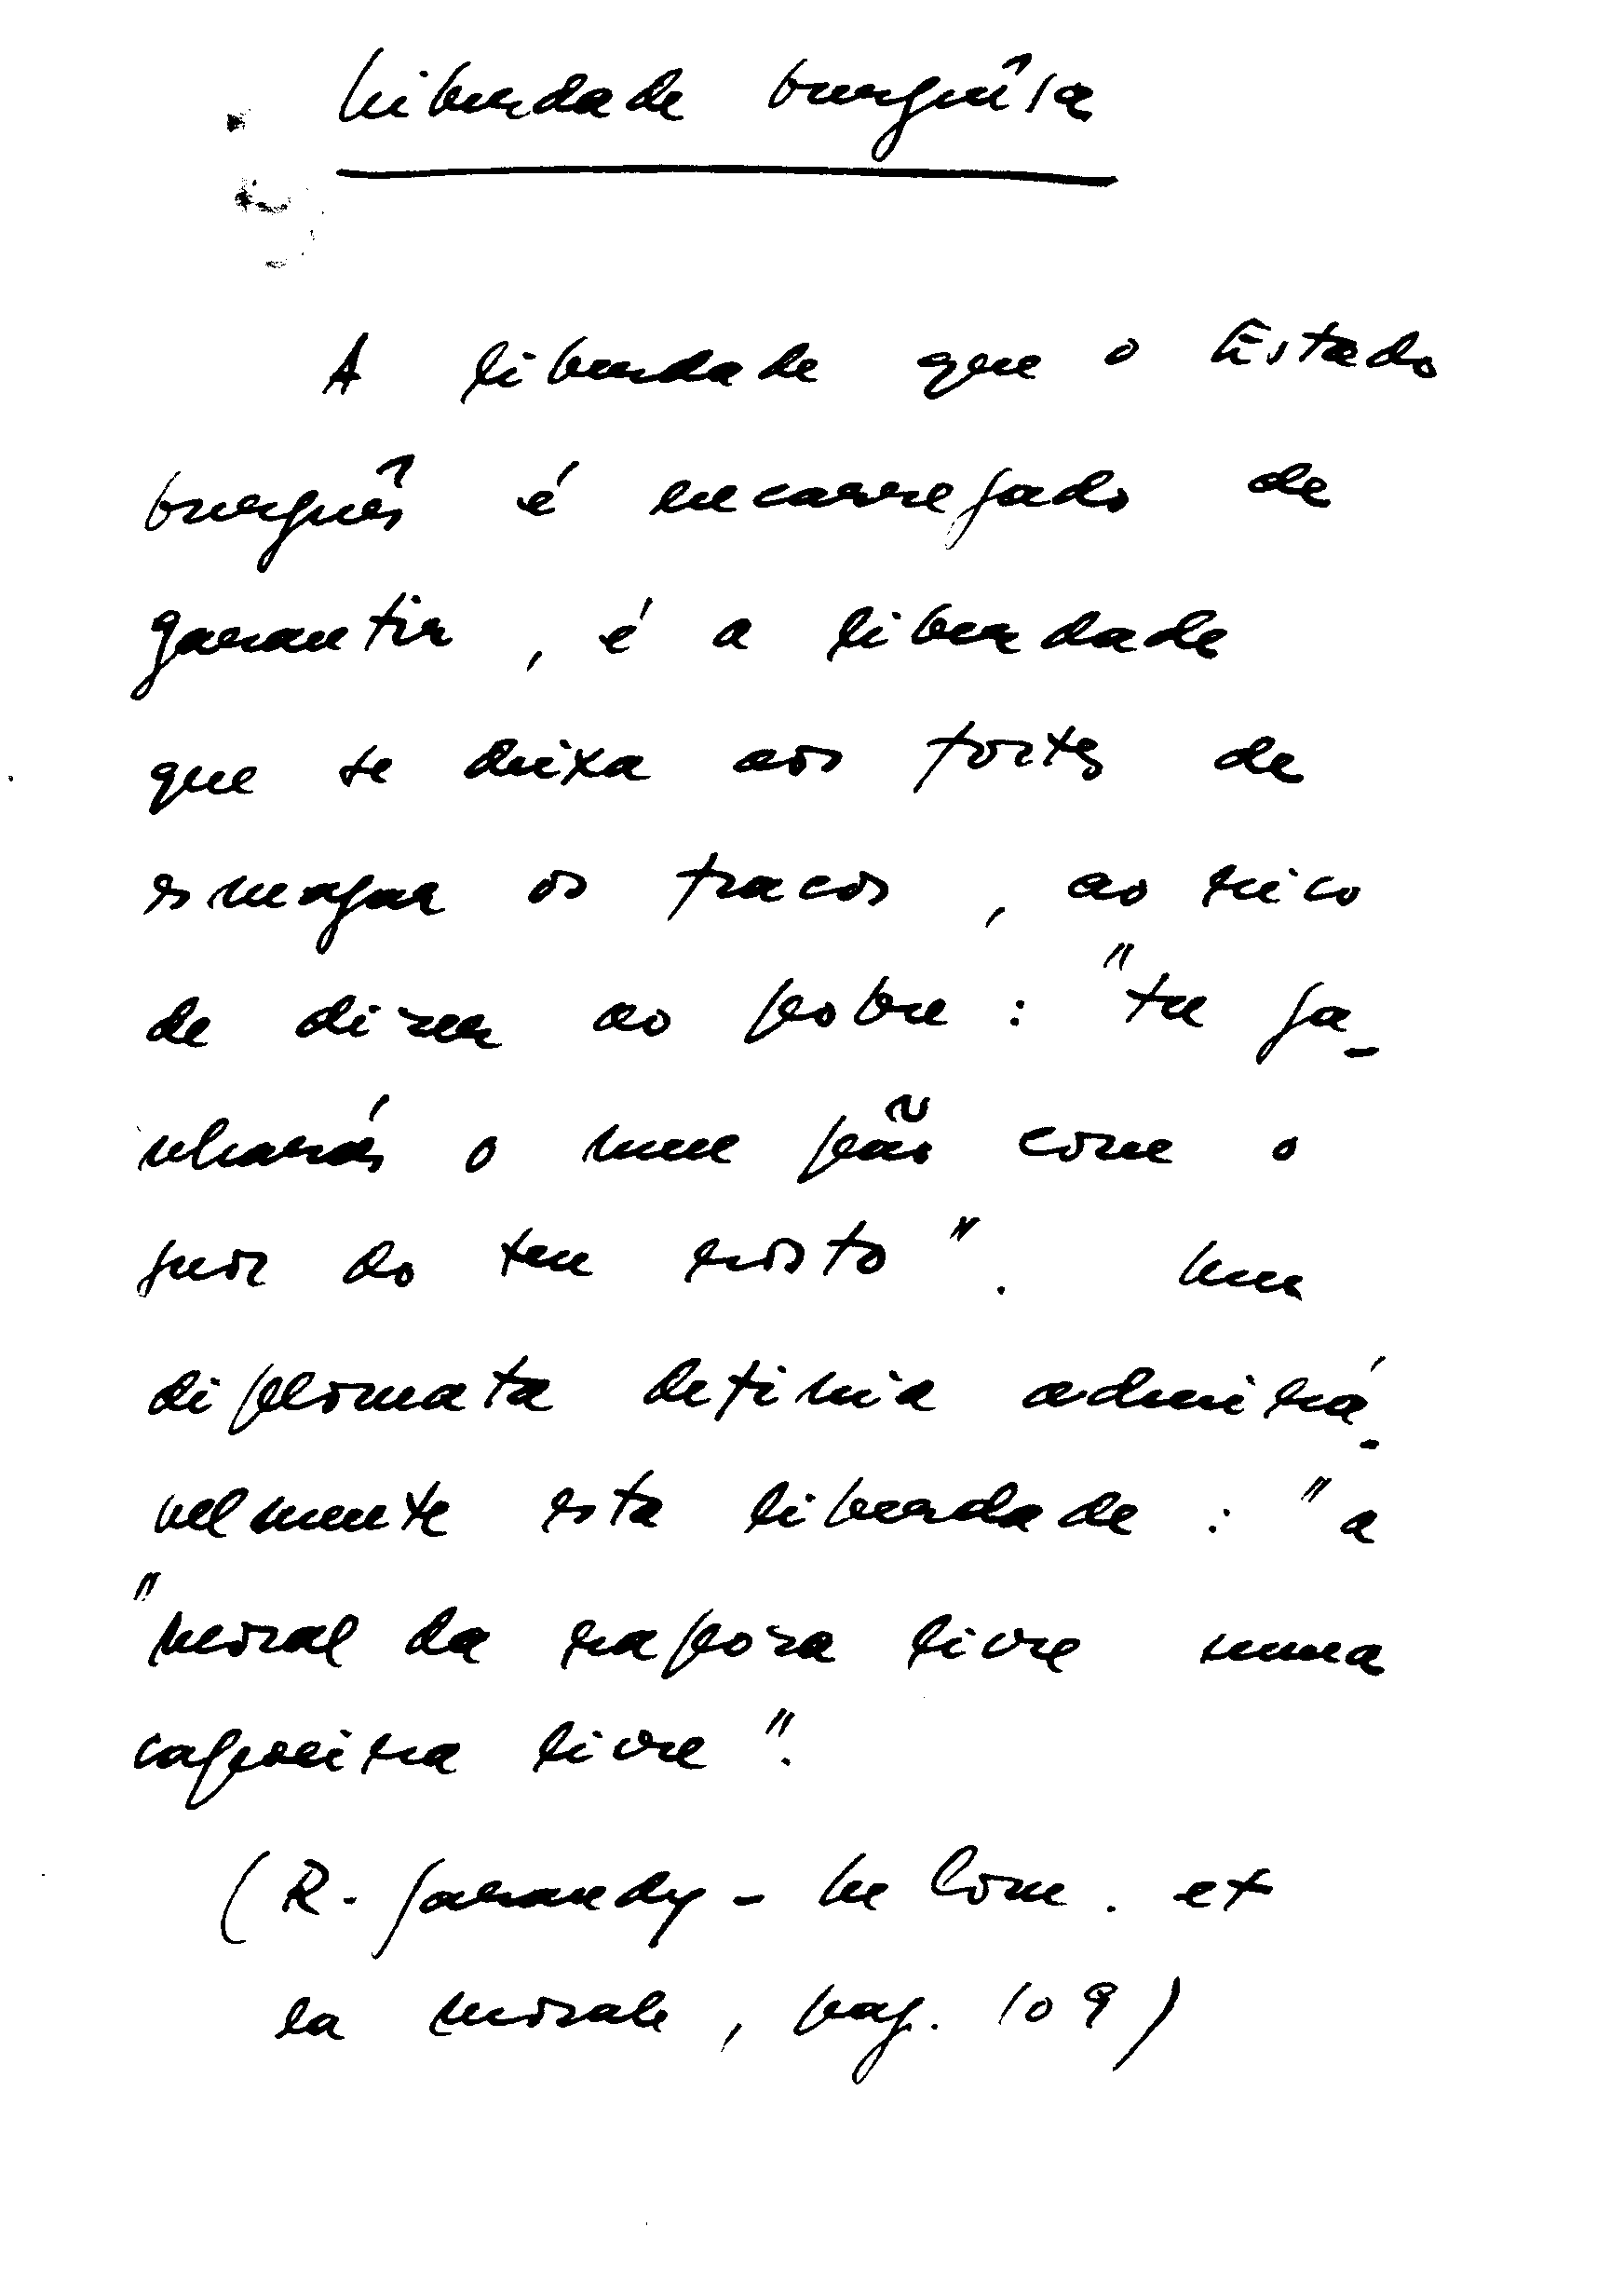 Liberdade burguêsa
A liberdade que o Estado
burguês é encarregado de
garantir, é a liberdade
que se deixa aos fortes de
esmagar os fracos, ao rico
de dizer ao pobre: "tu ga-
nharás o meu pão com o
suor do teu rosto". Um
diplomata definia admirá-
velmente esta liberdade: "a
"moral da raposa livre numa
capoeira livre".
(R. Garaudy - Le Com. et
la morale, pag. 109)